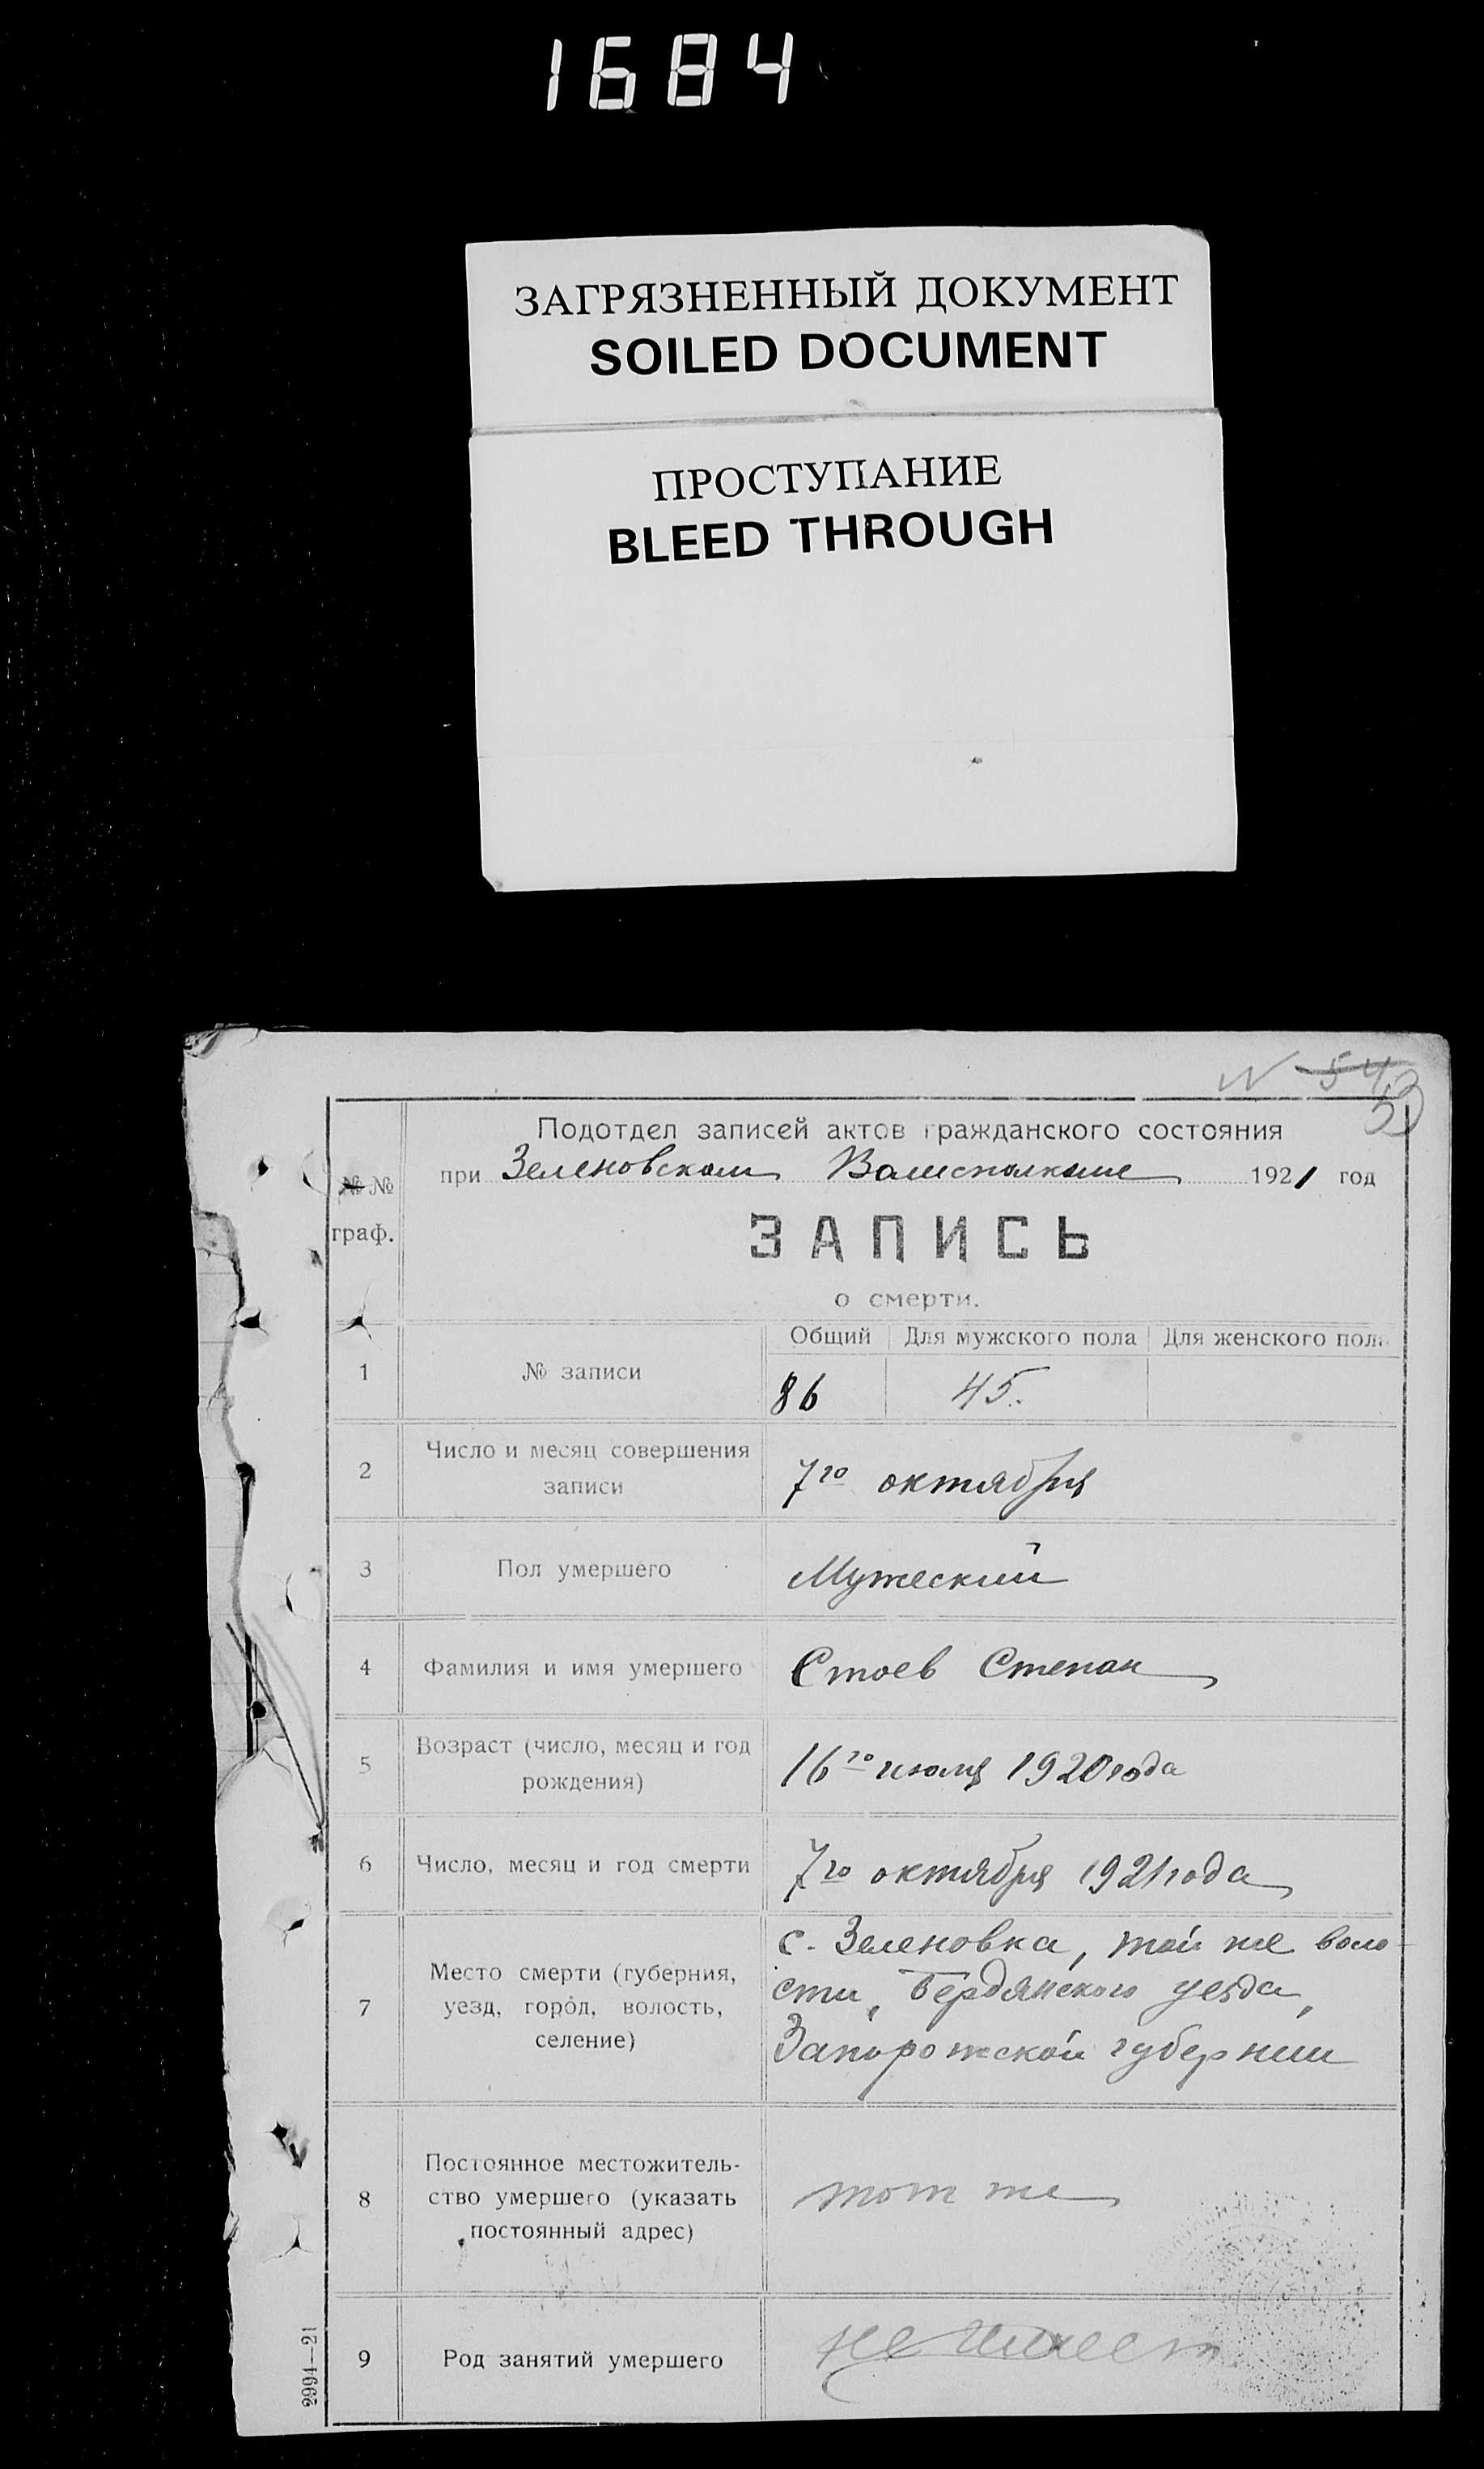 1684
ЗАГРЯЗНЕННЫЙ ДОКУМЕНТ
SOILED DOCUMENT
ПРОСТУПАНИЕ
BLEED THROUGH
N 54
53
Подотдел записей актов гражданского состояния
при Зеленовском Волисполкоме 1921 год
№ №
граф.
ЗАПИСЬ
о смерти.
Общий Для мужского пола Для женского пола
1 № записи 86 45.
2 Число и месяц совершения
записи
7го октября
3 Пол умершего Мужеский
4 Фамилия и имя умершего Стоев Степан
5 Возраст (число, месяц и год
рождения)
16го июля 1920 года
6 Число, месяц и год смерти 7го октября 1921 года
7 Место смерти (губерния,
уезд, город, волость,
селение)
с. Зеленовка, той же воло-
сти, Бердянского уезда,
Запорожской губернии
8 Постоянное местожитель-
ство умершего (указать
постоянный адрес)
тот же
9 Род занятий умершего не имеет
2994—21